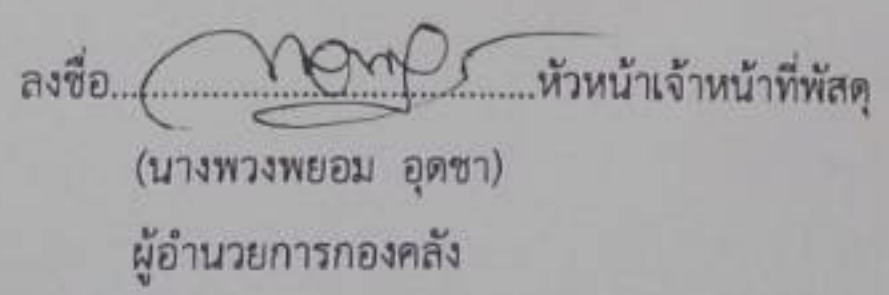 ลงชื่อ........................................หัวหน้าเจ้าหน้าที่พัสดุ
(นางพวงพยอม อุดชา)
ผู้อำนวยการกองคลัง